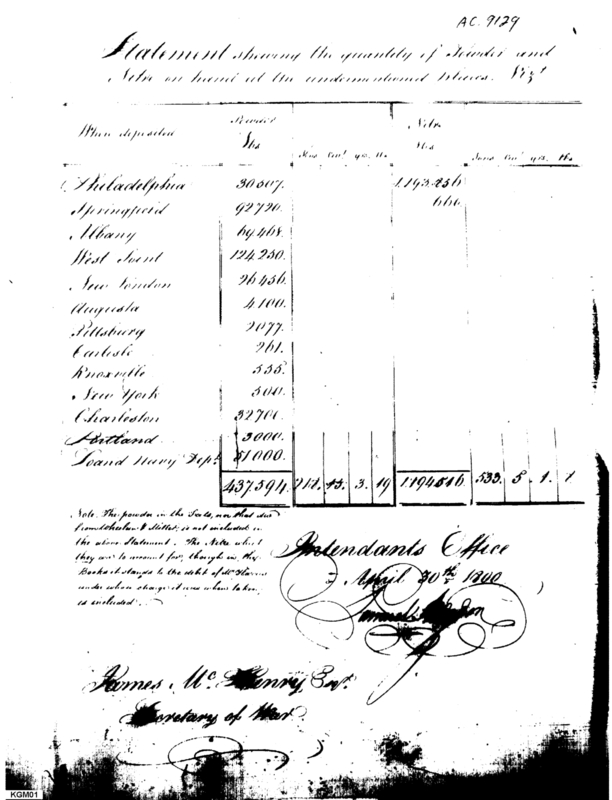 AC. 9129
Statement shewing the quantity of Powder and
Nitre on hand at the undermentioned places. Vizt
When deposited
Powder
lbs
Tons Cwt qrs. lbs
Nitre
lbs
Tons Cwt qrs. lbs
Philadelphia 30307. 1193.856
Springfield 92720. 660
Albany 69468.
West Point 124250.
New London 26456.
Augusta 4100.
Pittsburg 2077.
Carlisle 261.
Knoxville 555.
New York 500.
Charleston 32700.
Portland 3000.
Loand Navy Dept. 51000.
437.594. 3. 19 1194516. 533. 5. 1.
Note. The powder in the
from & is not included in
the above Statement. The Nitre which
they are to account for, though in the
Books it stands to the debit of Mr Harris
under whose charge it was when taken,
is included.
Intendants Office
April 30th 1800
Samuel
James McHenry, Esqr.
Secretary of War
KGM01